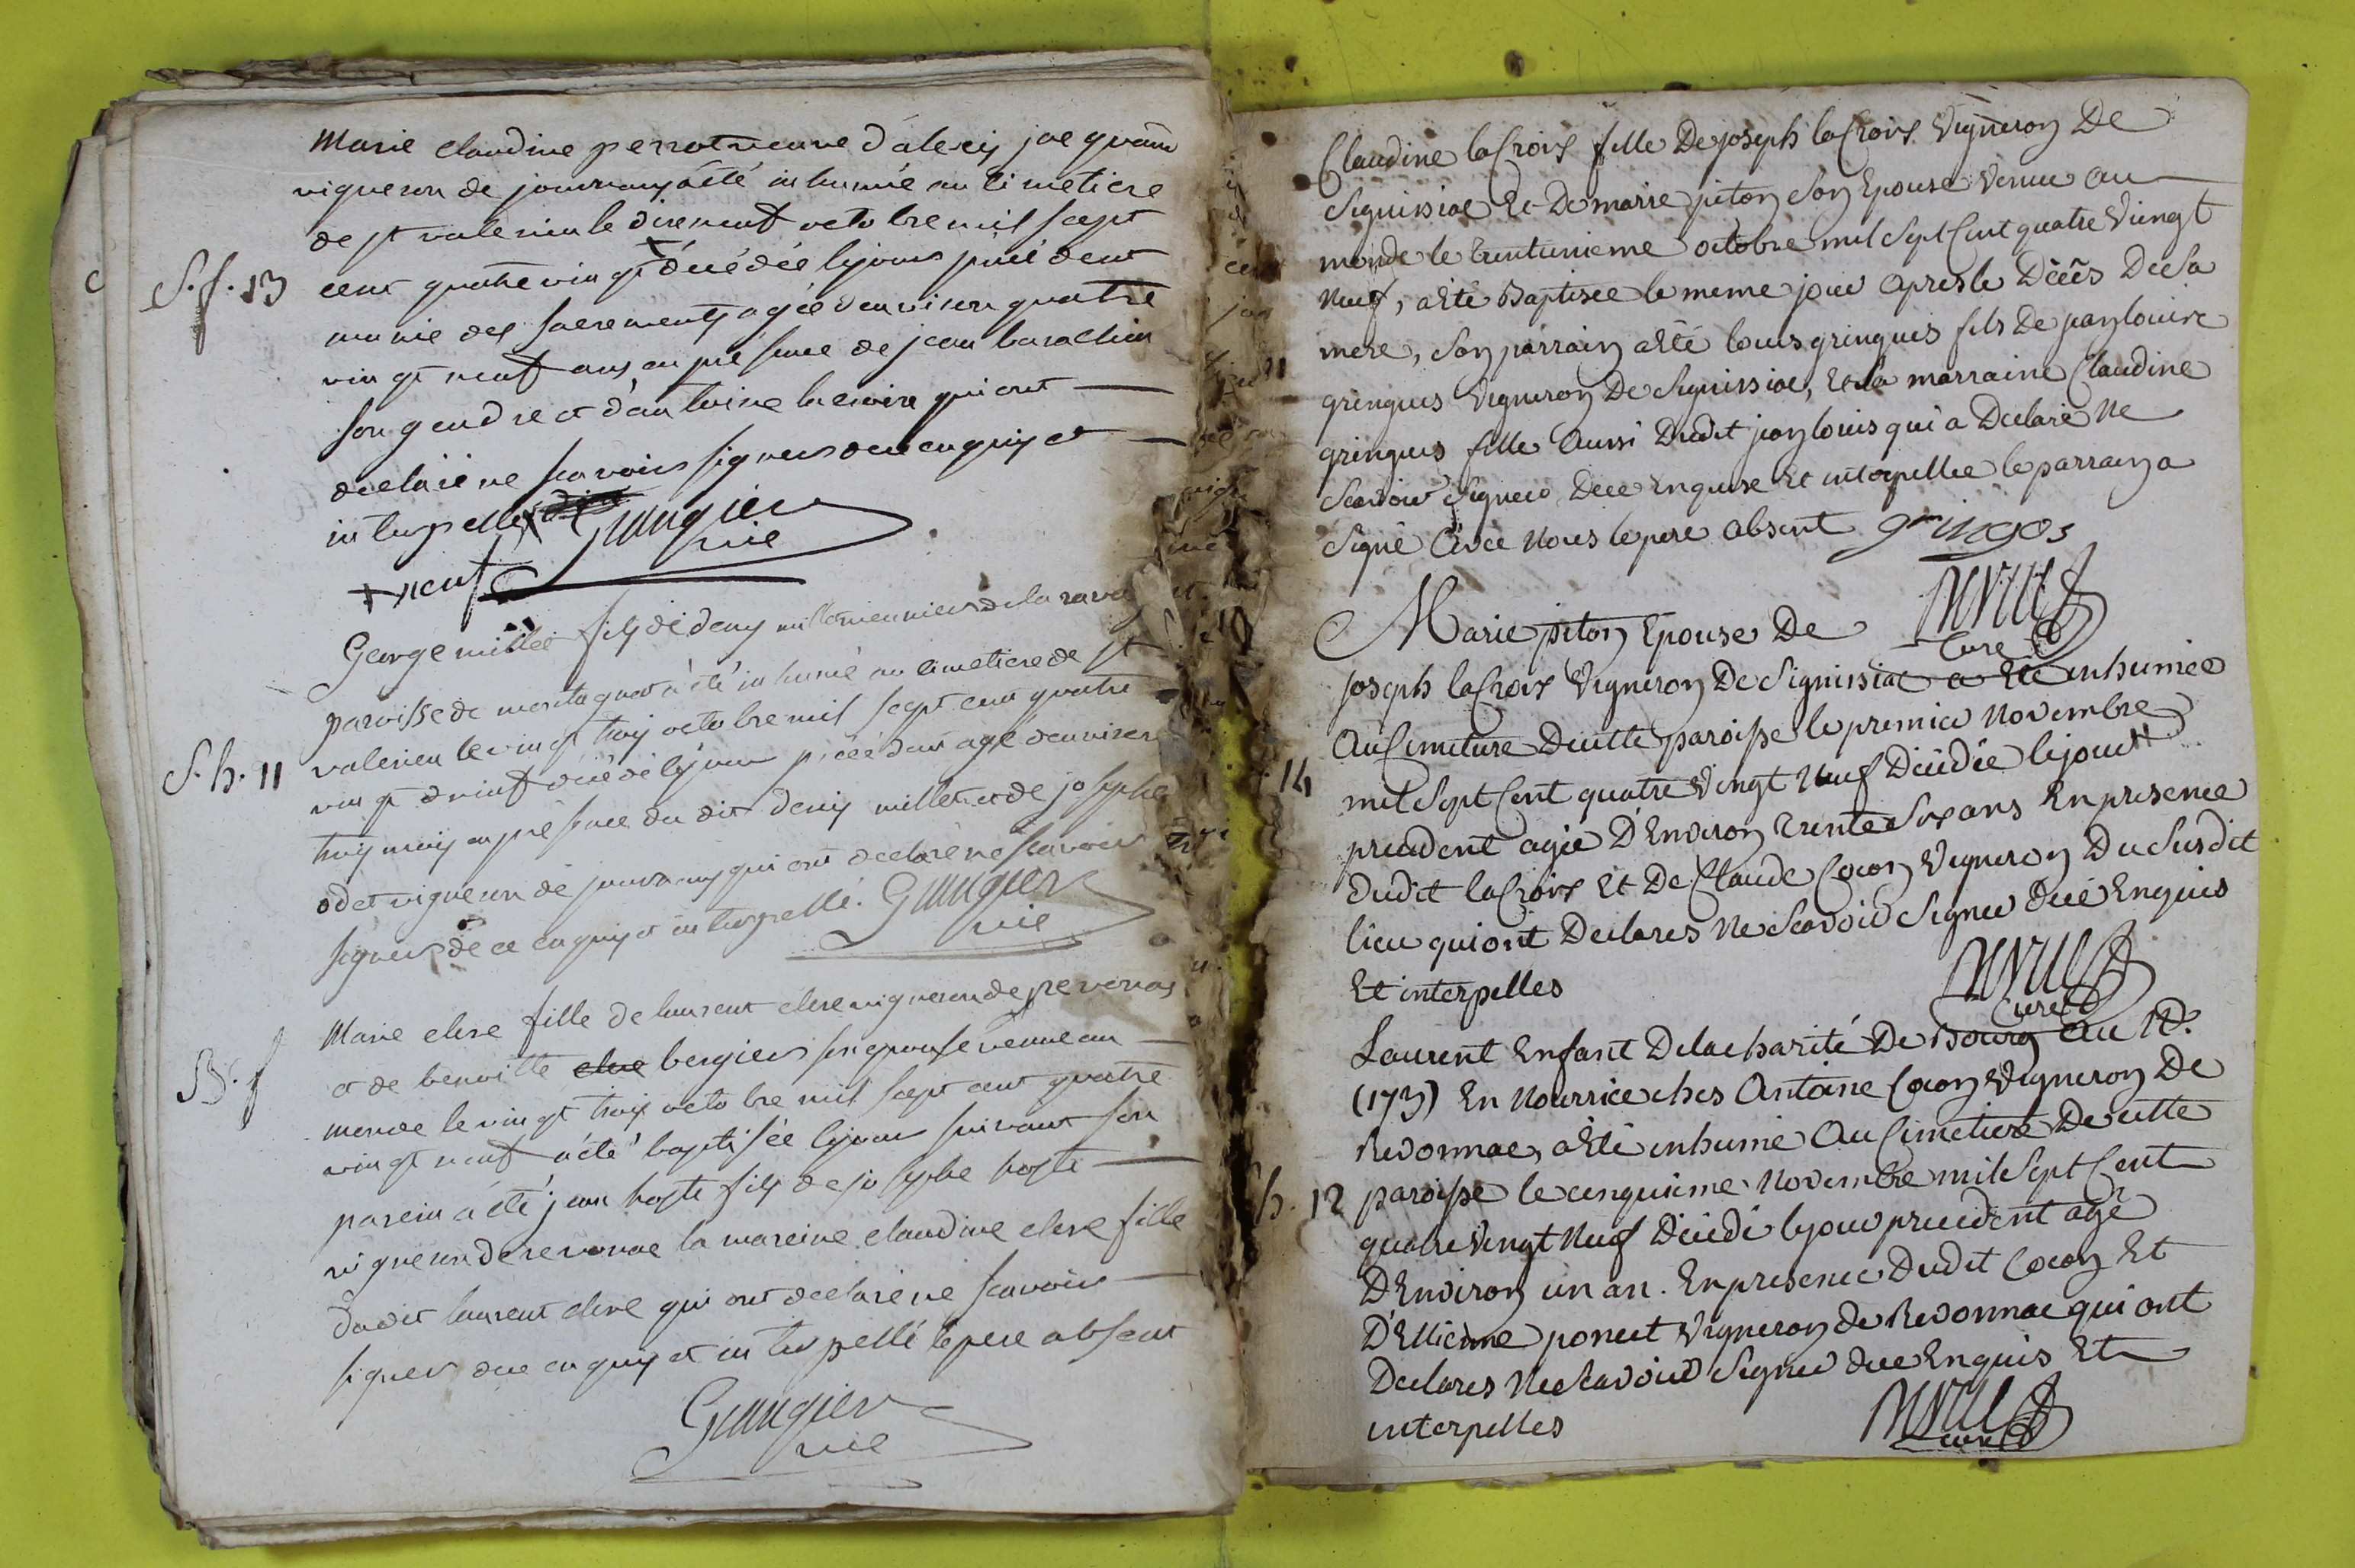 Marie claudine perrot veuve d'alexis jacquand
vigneron de journans a été inhumée au cimetiere
de st valerien le dixneuf octobre mil sept
S. f. 13
cent quatre vingt + décédée le jour précédent
munie des sacrements agée denviron quatre
vingt neuf ans en présence de jean
son gendre et d'antoine qui ont
declaré ne scavoir signer de ce enquis et
interpellés Grangier
vic
+ neuf
George millet fils de denys millet meunier de la
paroisse de montagnat a été inhumé au cimetiere de st
valerien le vingt trois octobre mil sept cent quatre
S. h. 11
vingt neuf décédé le jour précédent agé denviron
trois mois en présence du dit denis millet et de josephe
odet vigneron de journans qui ont declaré ne scavoir
signer de ce enquis et interpellé. Grangier
vic
Marie clere fille de laurent clere vigneron de revonas
et de benoitte clere bergier son epouse venue au
B. f
monde le vingt trois octobre mil sept cent quatre
vingt neuf a été baptisée le jour suivant son
parein a été jean hoste fils de josephe hoste
vigneron de revonnac la mareine claudine clere fille
dudit laurent clere qui ont declaré ne scavoir
signer de ce enquis et interpellé le pere absent
Grangier
vic
Claudine laCroix fille De joseph laCroix Vigneron De
Signissiac Et De marie piton Son Epouse Venue au
monde le trentunieme octobre mil Sept Cent quatre Vingt
Neuf, a Eté Baptisee le meme jour apres le Décès De Sa
mere, Son parrain a Eté louis gringues fils De janlouis
gringues Vigneron De Signissiac, Et la marraine Claudine
gringues fille Aussi Dudit janlouis qui a Declaré Ne
Scavoir Signer, De ce Enquise Et interpellee le parrain a
Signé Avec Nous le pere Absent gringos
Curé
Marie piton Epouse De
joseph laCroix Vigneron De Signissiac a Eté inhumée
Au Cimetiere De cette paroisse le premier Novembre
14
mil Sept Cent quatre Vingt Neuf Décédée le jour
precedent agée D'Environ trente Six ans En presence
dudit laCroix Et De Claude Cocon Vigneron Du Susdit
lieu qui ont Declarés Ne Scavoir Signer de ce Enquis
Et interpellés
Curé
Laurent Enfant De la charité De Bourg au N°.
(173) En Nourrice ches Antoine Cocon Vigneron De
Revonnac, a Eté inhumé Au Cimetiere De cette
h. 12
paroisse le cinquieme Novembre mil Sept Cent
quatre Vingt Neuf Décédé le jour precedent agé
D'Environ un an. En presence Dudit Cocon Et
D'Ettienne poncet Vigneron de Revonnac qui ont
Declarés Ne Scavoir Signer de ce Enquis Et
interpellés
curé